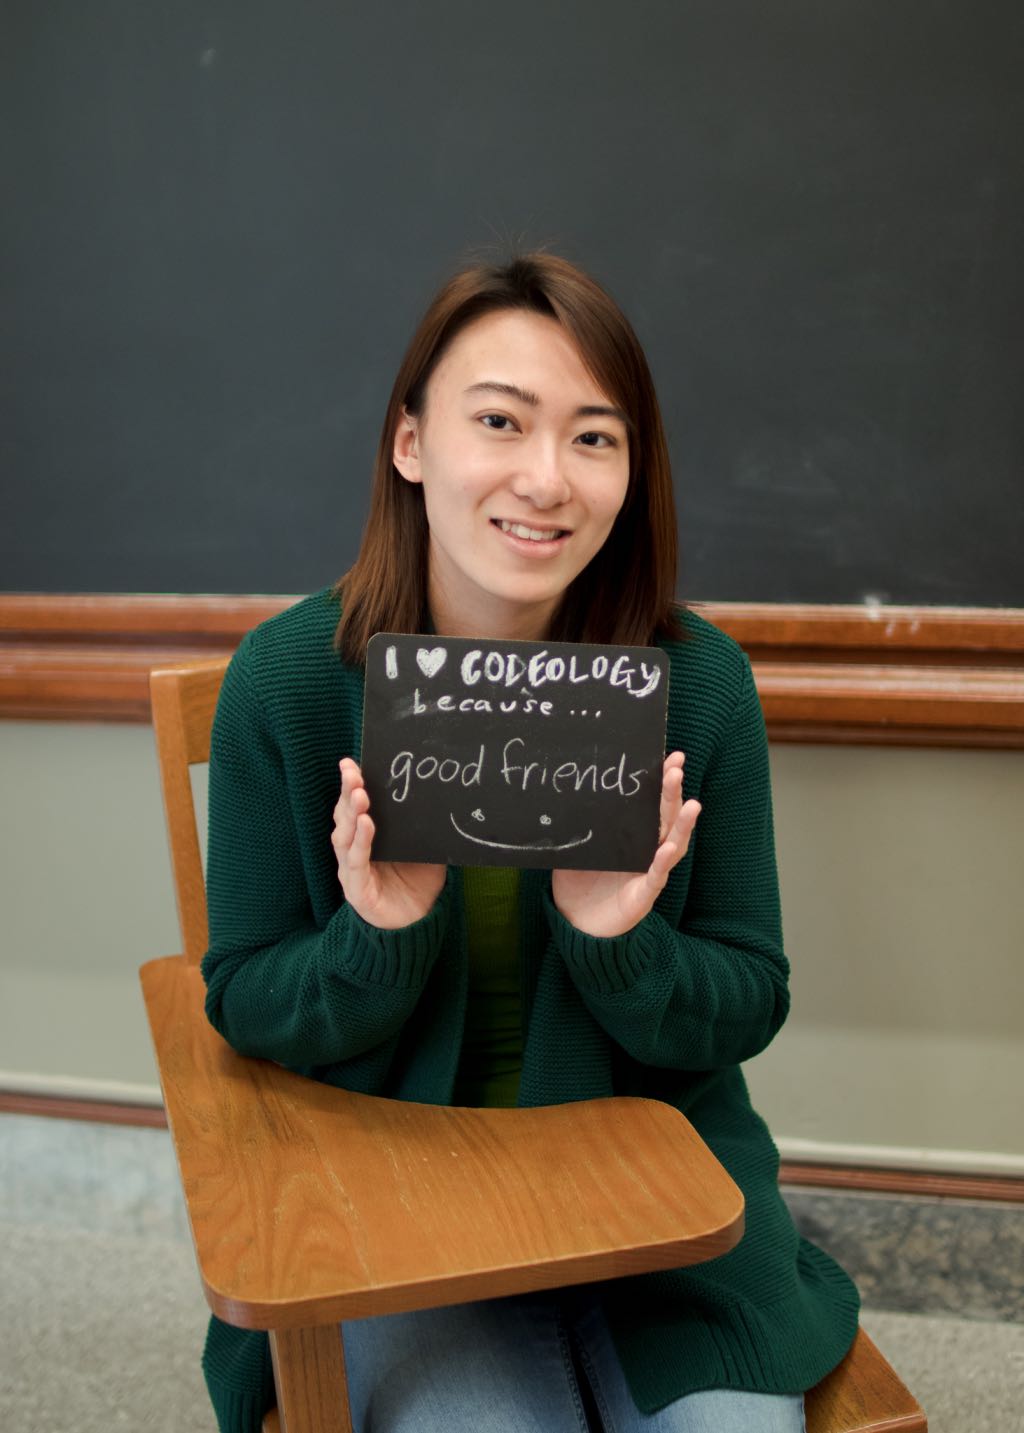 I ♥ CODEOLOGY
because...
good friends